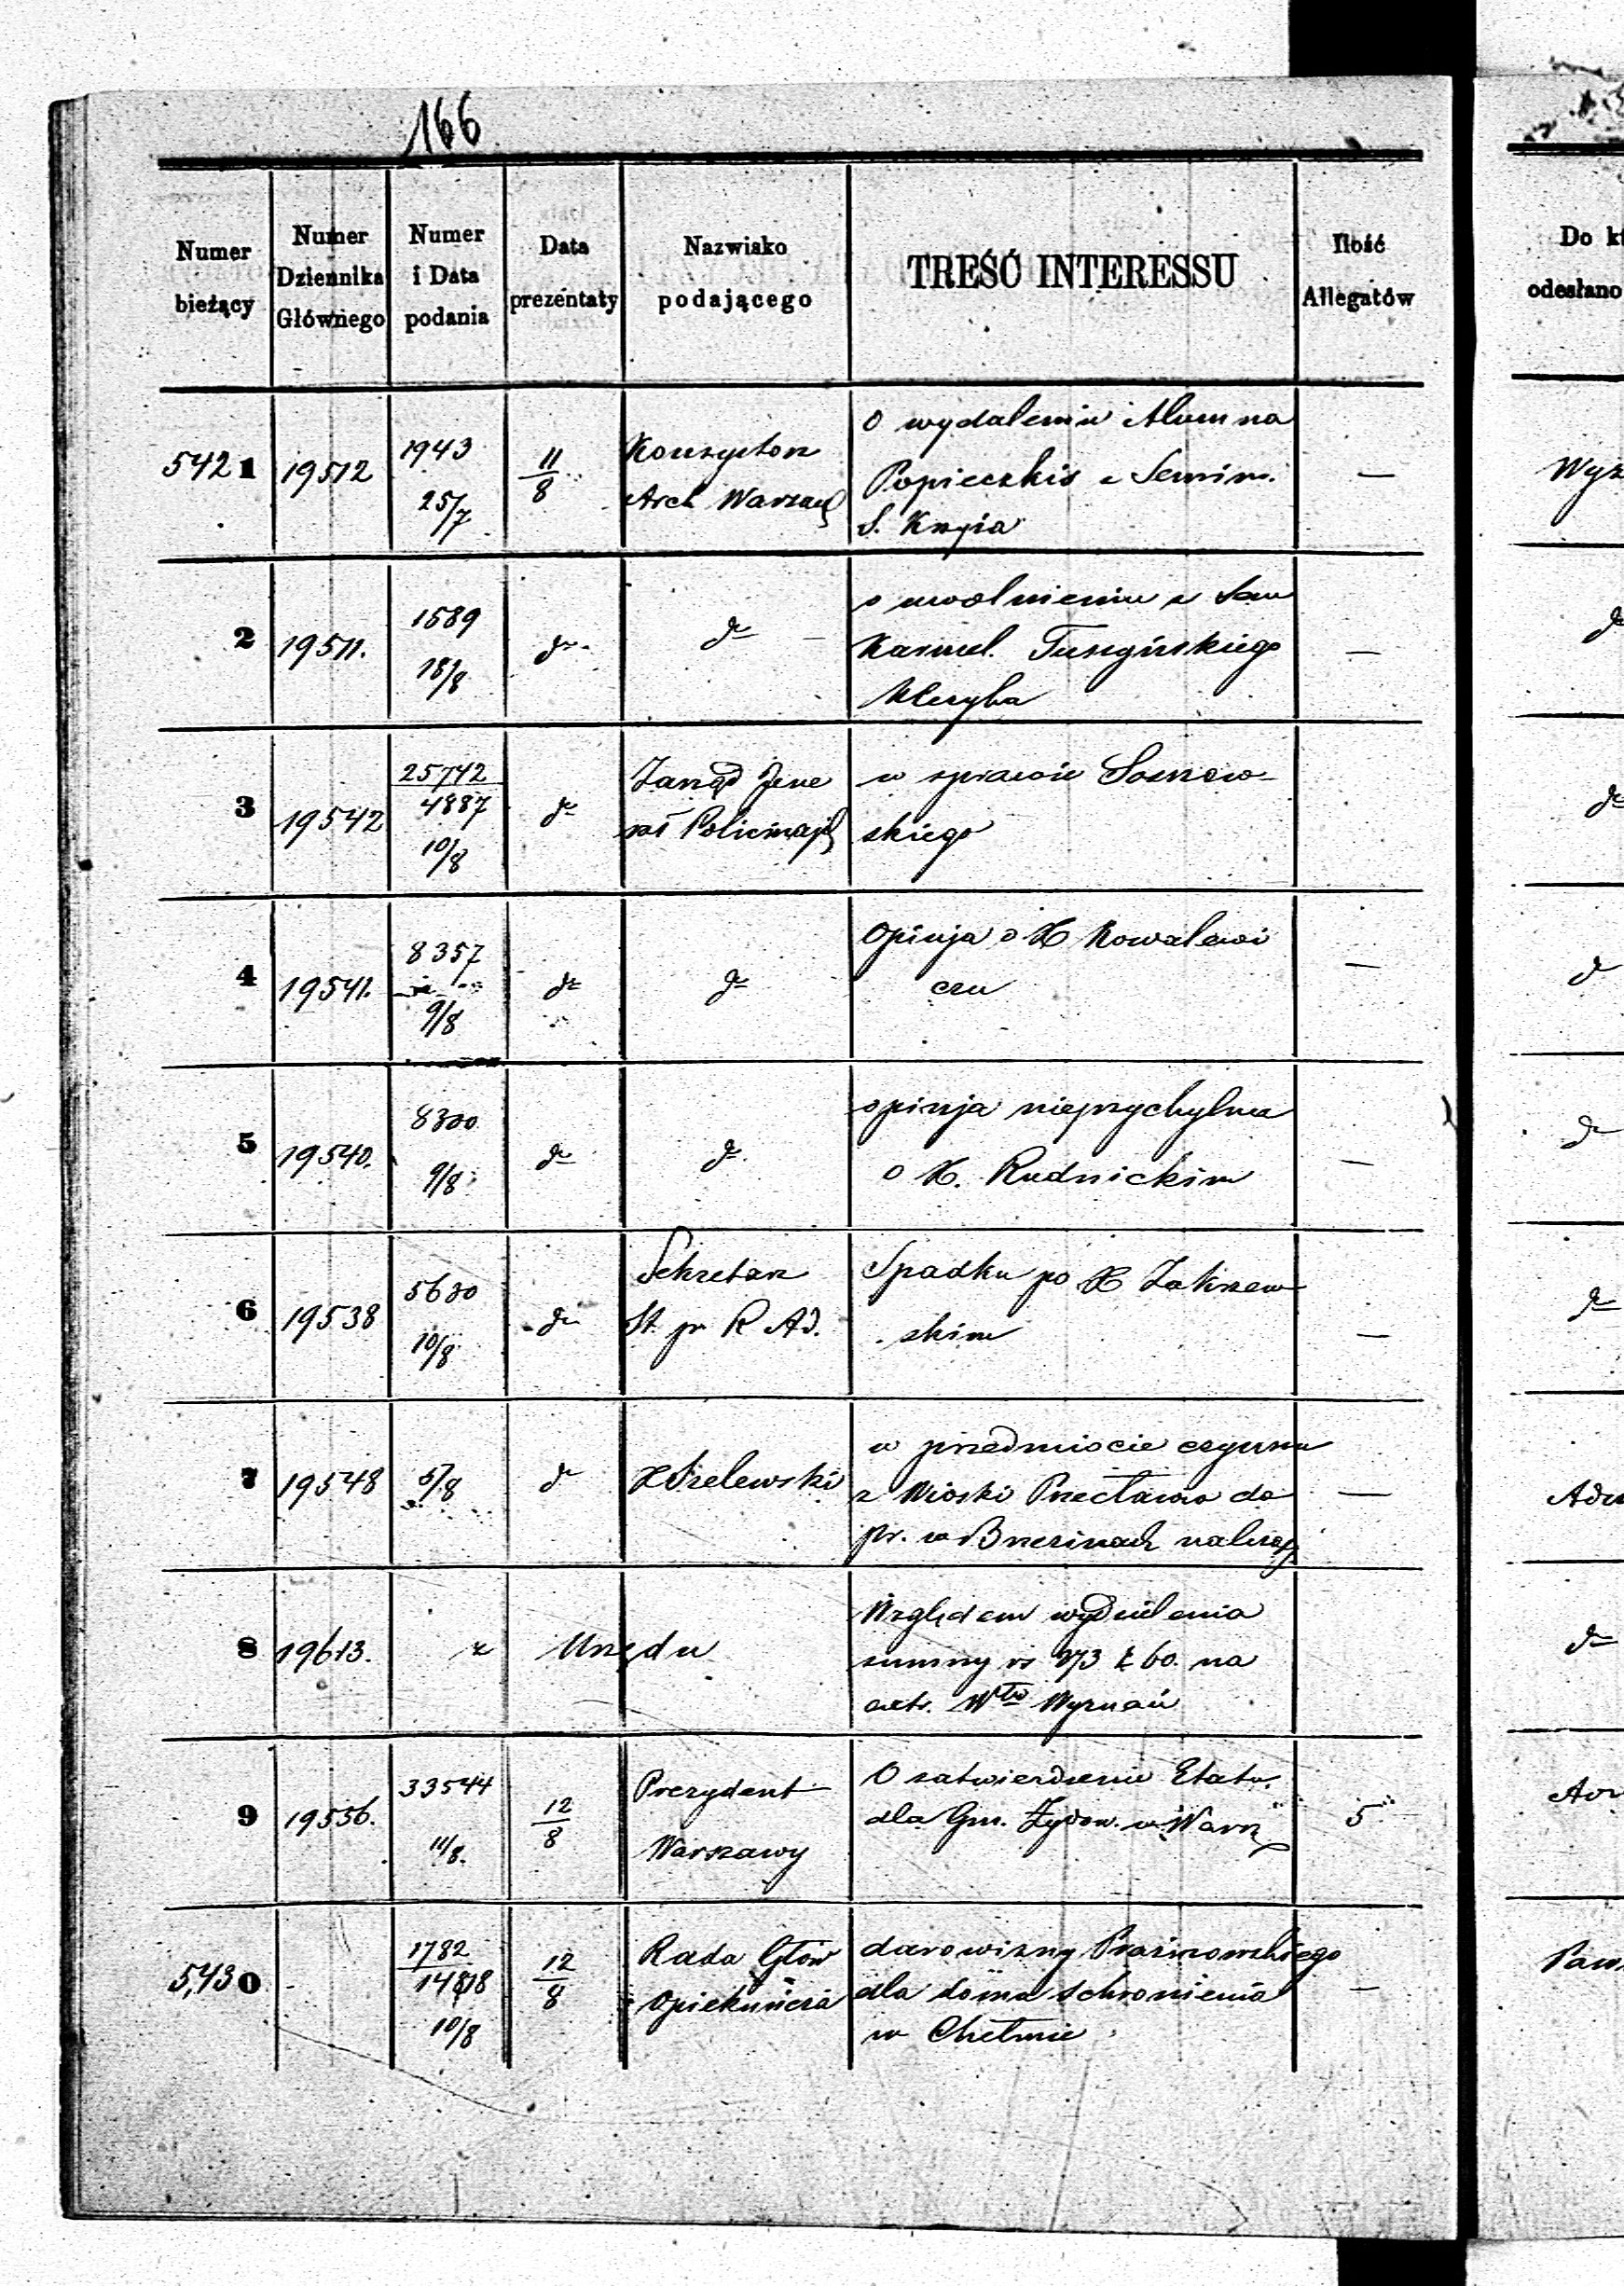 166
Numer bieżący
Numer Dziennika Głównego
Numer i Data podania
Data prezentaty
Nazwisko podającego
TREŚĆ INTERESSU
Ilość Allegatów
Do
odesłano
5421 19512 1943 25/7 11/8
Konsystorz
Arch Warszaw
O wydaleniu Alumna
Popieczkis z Semin.
S. Krzyża
—
2 19511. 1589 18/8 do do
o uwolnieniu z
Karmel. Tuszyńskiego
Kleryka
—
do
3 19542 25742 4887 10/8 do
Zarząd Jene
rał Policmajs
w sprawie Sosnow-
skiego
do
4 19541. 8357 9/8 do do
Opinja o X Kowalewi
czu
—
do
5 19540. 8300 9/8 do do
opinja nieprzychylna
o X. Rudnickim
—
do
6 19538 5630 10/8 do
Sekretarz
St. pr R Ad.
Spadku po X Zakrzew
skim
—
do
7 19548 5/8 do
X Szelewski
w przedmiocie czynszu
z Wioski Przecławia do
pr. w Brzezinach należą
—
8 19613. z Urzędu
Względem wydzielenia
summy rs 273 k 60. na
Wtw Wyznań
do
9 19556. 33544 11/8. 12/8
Prezydent
Warszawy
O zatwierdzenie Etatu
dla Gm. Żydow. w Warsz
5
5430 1782 14818 10/8 12/8
Rada Głów
Opiekuńcza
darowizny
dla domu schronienia
w Chełmie
—